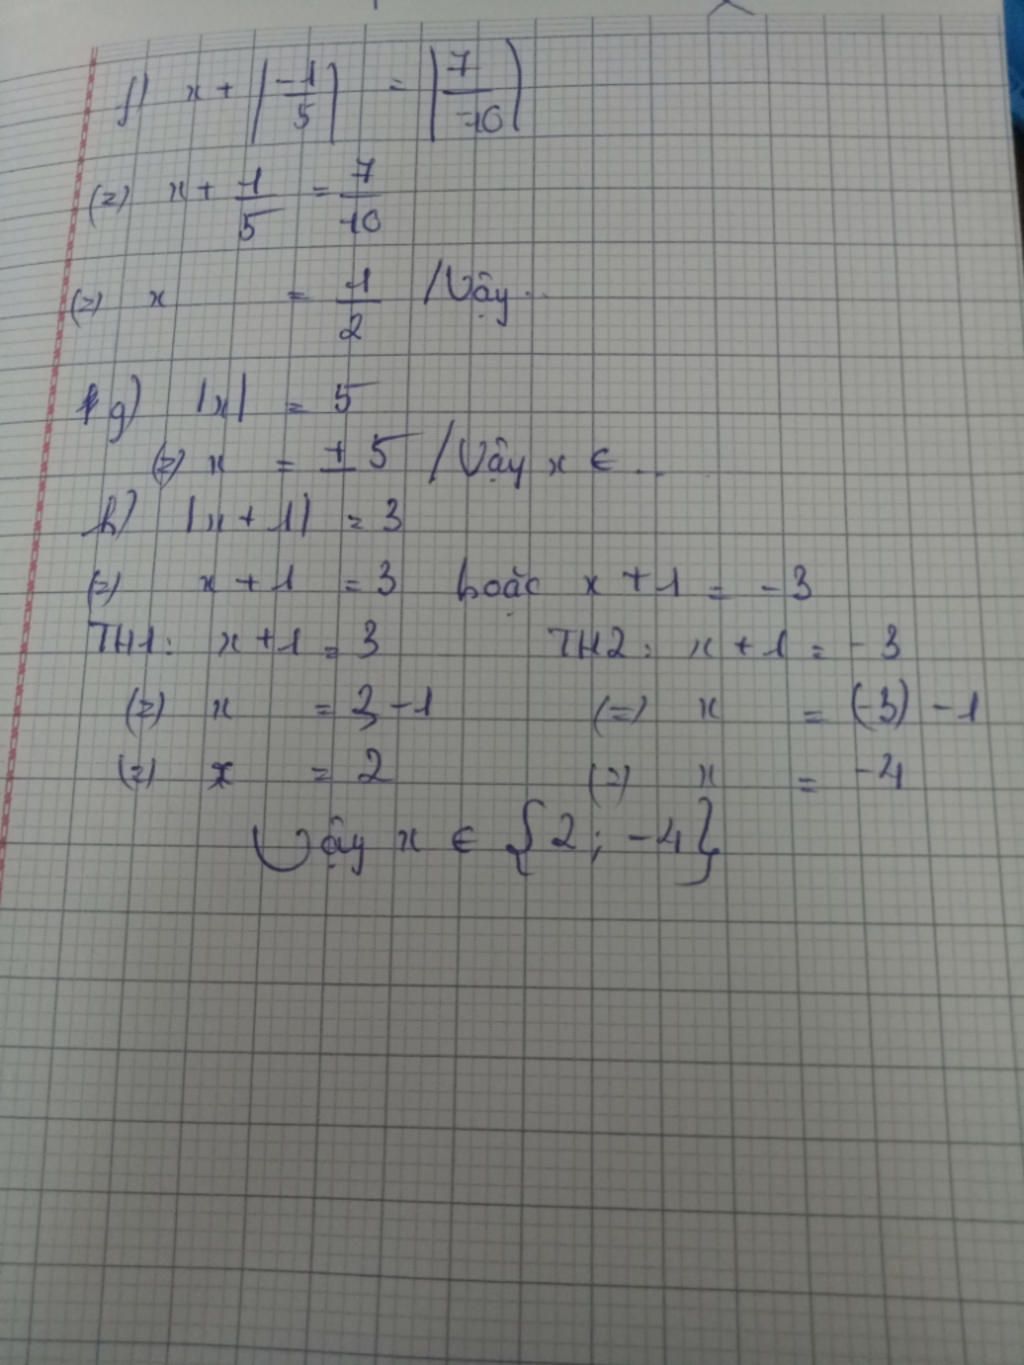 f) x + |-1/5| = |7/-10|
(=) x + 1/5 = 7/10
(=) x = 1/2 / Vậy...
g) |x| = 5
(=) x = ± 5 / Vậy x ∈ ...
h) |x + 1| = 3
(=) x + 1 = 3 hoặc x + 1 = -3
TH1: x + 1 = 3 TH2: x + 1 = -3
(=) x = 3 - 1 (=) x = (-3) - 1
(=) x = 2 (=) x = -4
Vậy x ∈ {2; -4}